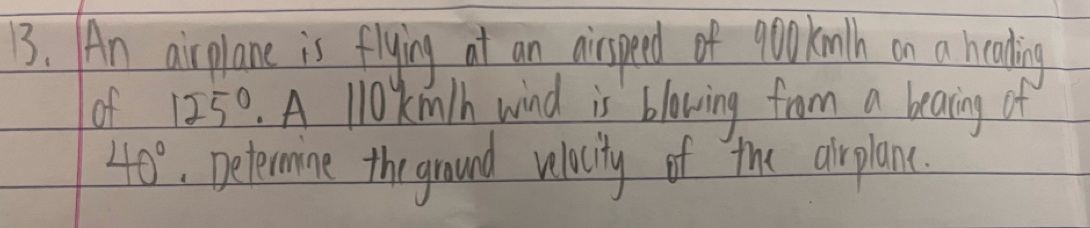 13. An airplane is flying at an airspeed of 900km/h on a heading
of 125°. A 110km/h wind is blowing from a bearing of
40°. Determine the ground velocity of the airplane.